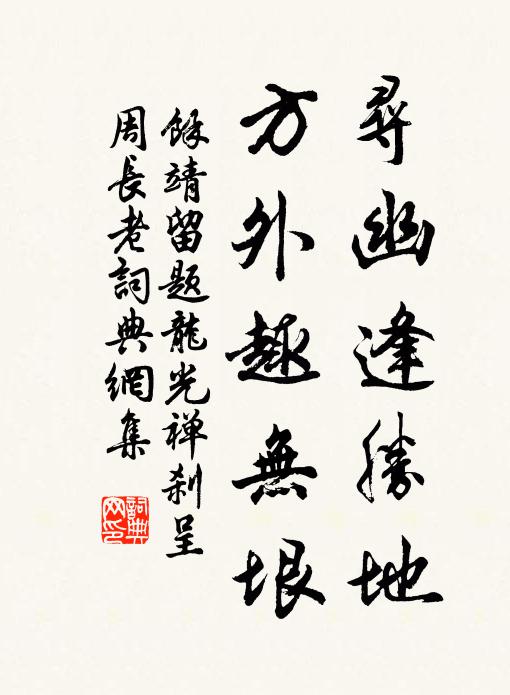 尋幽逢勝地
方外趣無垠
餘靖留題龍光禅刹呈
周長老詞典網集
詞典
网印